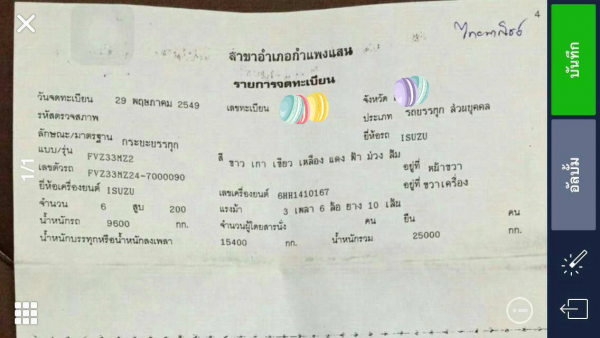 4
ไทยพาณิชย์
สาขาอำเภอกำแพงแสน
รายการจดทะเบียน
วันจดทะเบียน 29 พฤษภาคม 2549 เลขทะเบียน จังหวัด
รหัสตรวจสภาพ ประเภท รถบรรทุก ส่วนบุคคล
ลักษณะ/มาตรฐาน กระยะบรรทุก ยี่ห้อรถ ISUZU
แบบ/รุ่น FVZ33MZ2 สี ขาว เทา เขียว เหลือง แดง ฟ้า ม่วง ส้ม
เลขตัวรถ FVZ33MZ24-7000090 อยู่ที่ หน้าขวา
ยี่ห้อเครื่องยนต์ ISUZU เลขเครื่องยนต์ 6HH1410167 อยู่ที่ ขวาเครื่อง
จำนวน 6 สูบ 200 แรงม้า 3 เพลา 6 ล้อ ยาง 10 เส้น
น้ำหนักรถ 9600 กก. จำนวนผู้โดยสารนั่ง คน ยืน คน
น้ำหนักบรรทุกหรือน้ำหนักลงเพลา 15400 กก. น้ำหนักรวม 25000 กก.
1/1
บันทึก
อัลบั้ม